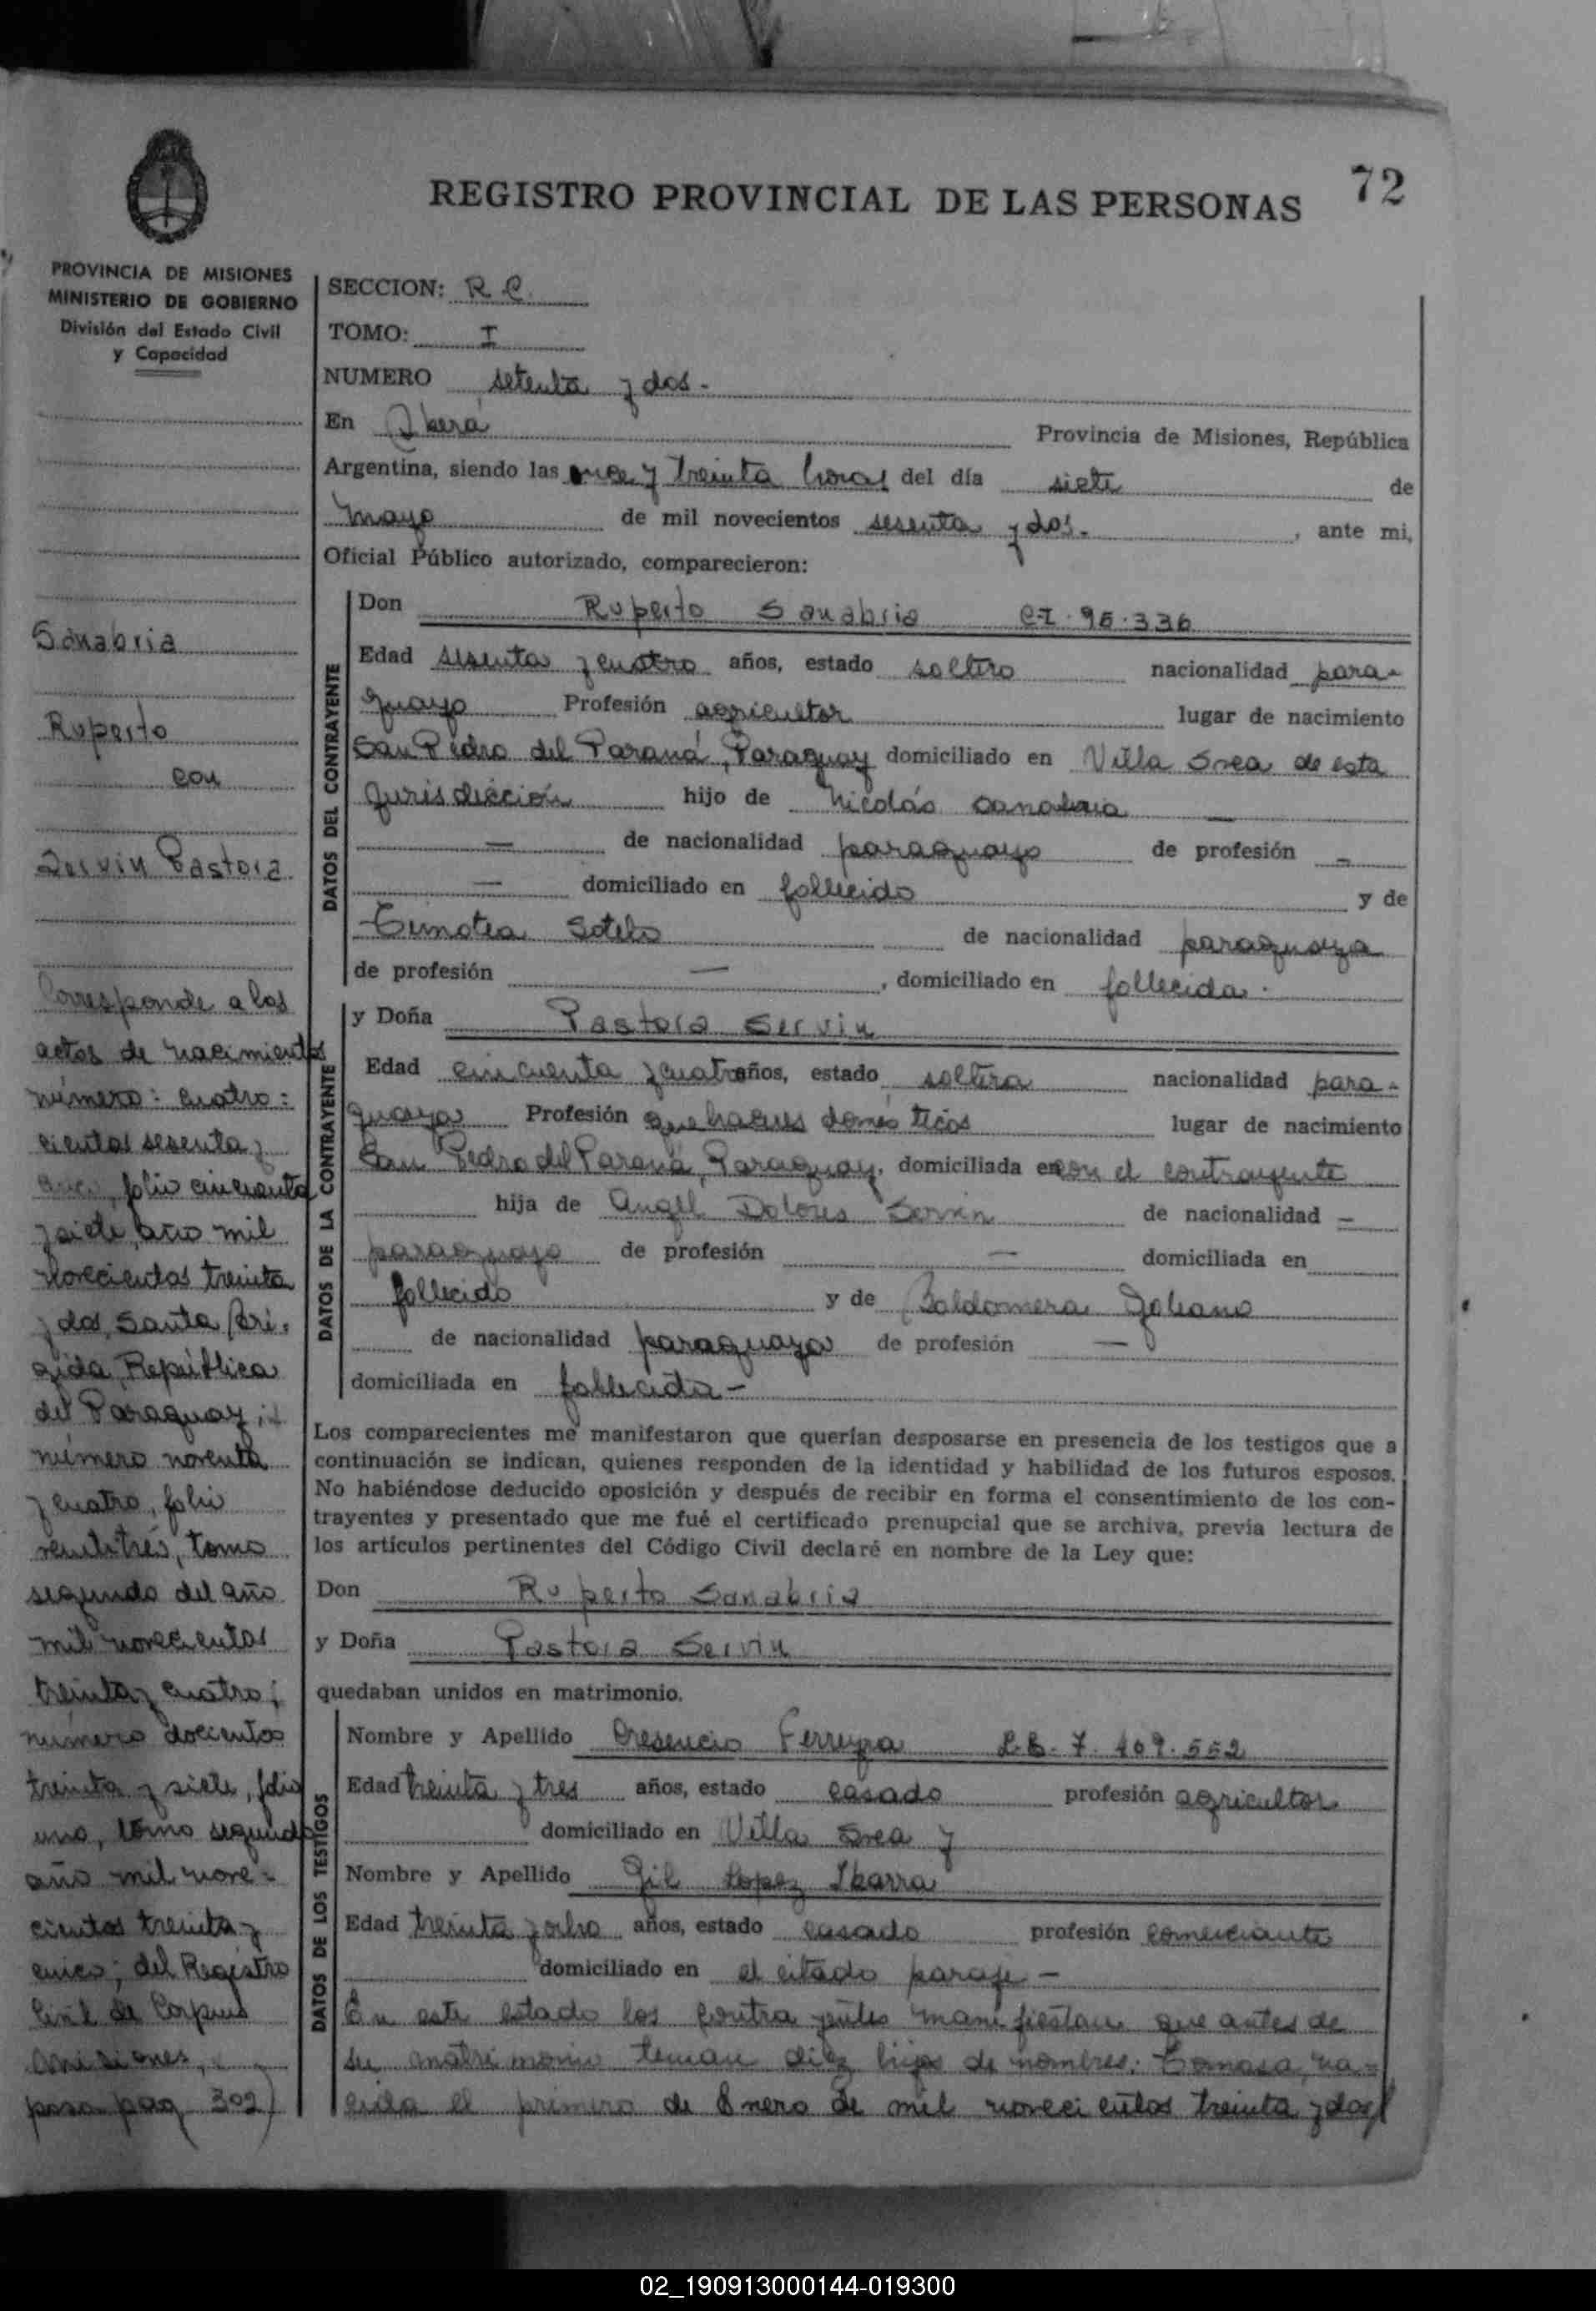 REGISTRO PROVINCIAL DE LAS PERSONAS 72
PROVINCIA DE MISIONES
MINISTERIO DE GOBIERNO
División del Estado Civil
y Capacidad
Sanabria
Ruperto
con
Servin Pastora.
Corresponde a los
actos de nacimientos
número: cuatro=
cientos sesenta y
cinco, folio cincuenta
y siete, año mil
novecientos treinta
y dos, Santa Brí-
gida, República
del Paraguay;
número noventa
y cuatro, folio
veintitrés, tomo
segundo del año
mil novecientos
treinta y cuatro;
número doscientos
treinta y siete, folio
uno, tomo segundo
año mil nove=
cientos treinta y
cinco; del Registro
Civil de Corpus
Misiones,
pasa pag 302)
SECCION: R C.
TOMO: I
NUMERO setenta y dos.
En Iberá Provincia de Misiones, República
Argentina, siendo las once y treinta horas del día siete de
Mayo de mil novecientos sesenta y dos. , ante mi,
Oficial Público autorizado, comparecieron:
DATOS DEL CONTRAYENTE
Don Ruperto Sanabria C.I. 96.336
Edad sesenta y cuatro años, estado soltero nacionalidad para-
guayo Profesión agricultor lugar de nacimiento
San Pedro del Paraná, Paraguay domiciliado en Villa de esta
Jurisdicción hijo de Nicolás Sanabria —
— de nacionalidad paraguayo de profesión —
— domiciliado en fallecido y de
Timotea Sotelo de nacionalidad paraguaya
de profesión — , domiciliado en fallecida.
DATOS DE LA CONTRAYENTE
y Doña Pastora Servin
Edad cincuenta y cuatro años, estado soltera nacionalidad para-
guaya Profesión quehaceres domésticos lugar de nacimiento
San Pedro del Paraná, Paraguay, domiciliada en con el contrayente
hija de Angel Dolores Servin de nacionalidad —
paraguayo de profesión — domiciliada en
fallecido y de Baldomera
de nacionalidad paraguaya de profesión —
domiciliada en fallecida -
Los comparecientes me manifestaron que querían desposarse en presencia de los testigos que a
continuación se indican, quienes responden de la identidad y habilidad de los futuros esposos.
No habiéndose deducido oposición y después de recibir en forma el consentimiento de los con-
trayentes y presentado que me fué el certificado prenupcial que se archiva, previa lectura de
los artículos pertinentes del Código Civil declaré en nombre de la Ley que:
Don Ruperto Sanabria
y Doña Pastora Servin
quedaban unidos en matrimonio.
DATOS DE LOS TESTIGOS
Nombre y Apellido Cresencio Ferreyra L.E. 7.409.552
Edad treinta y tres años, estado casado profesión agricultor
domiciliado en Villa y
Nombre y Apellido Gil Lopez Ibarra
Edad treinta y ocho años, estado casado profesión comerciante
domiciliado en el citado paraje -
En este estado los contrayentes manifiestan que antes de
su matrimonio tenian diez hijos de nombres: Tomasa, na=
cida el primero de Enero de mil novecientos treinta y dos
02_190913000144-019300